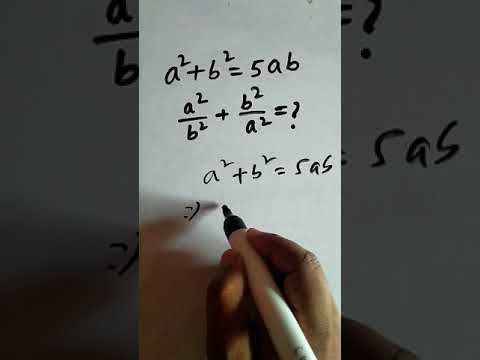 a² + b² = 5ab
a²/b² + b²/a² = ?
a² + b² = 5ab
⇒